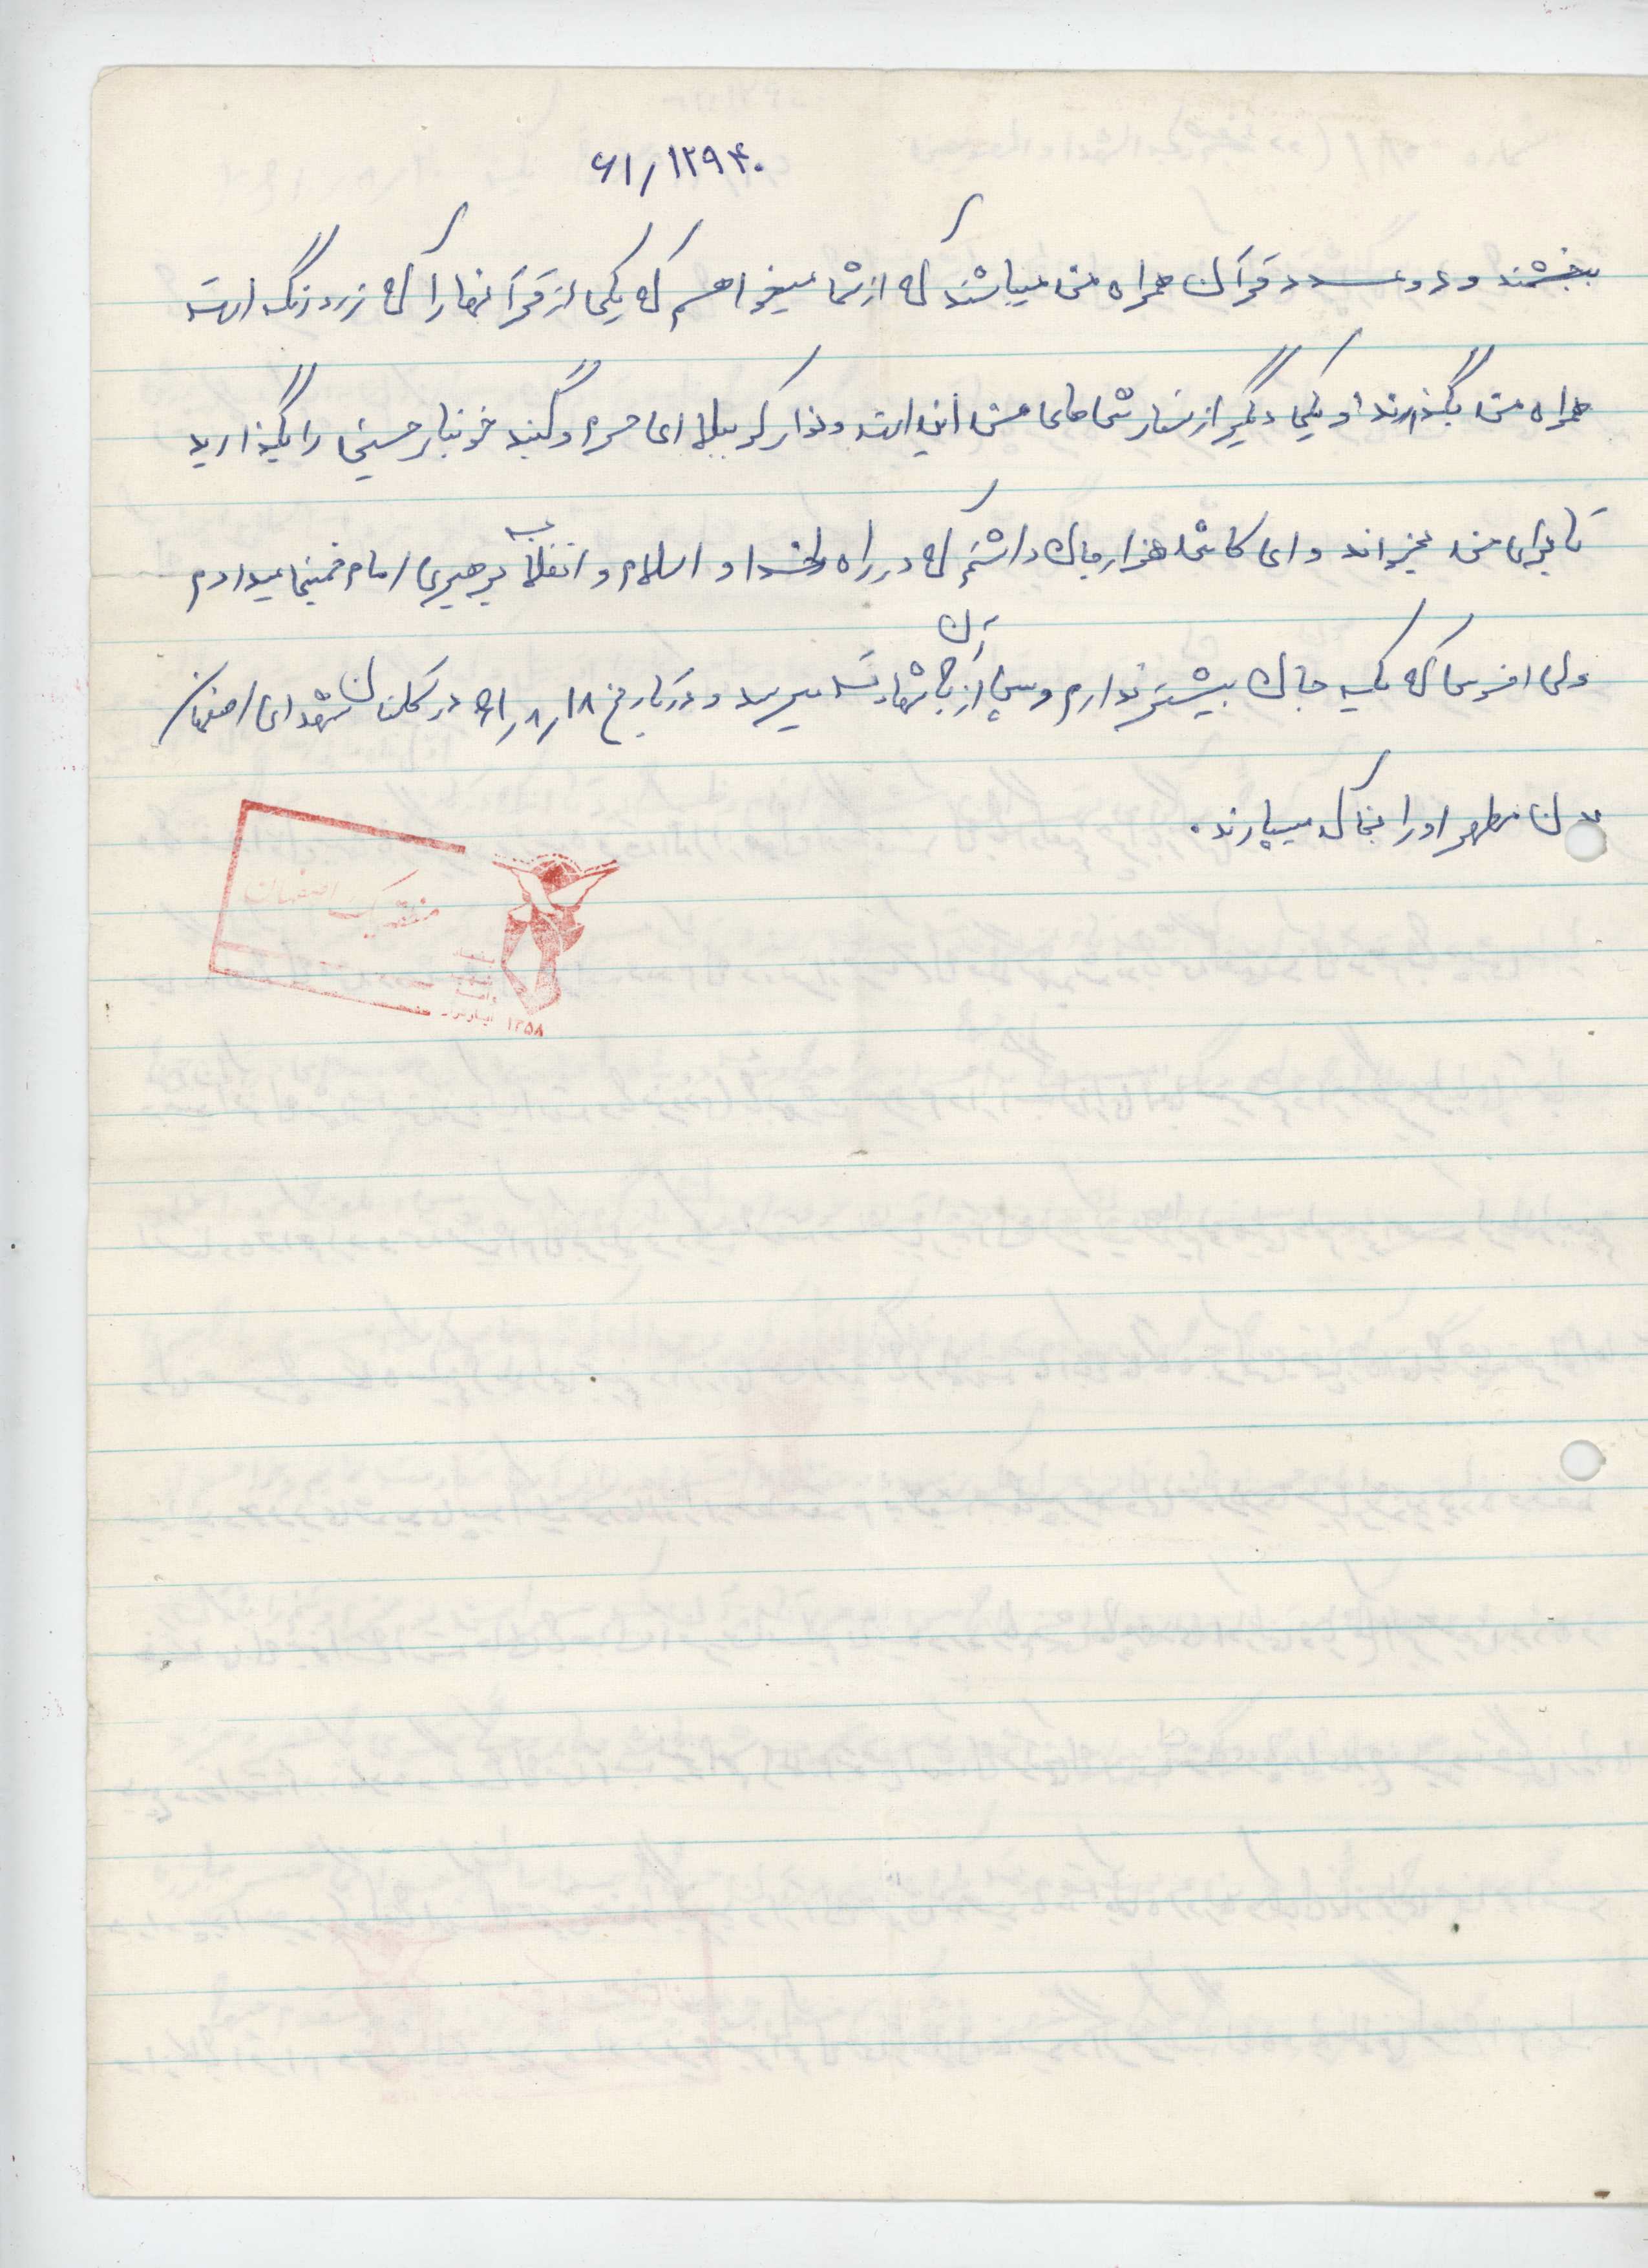 ۶۱/۱۲۹۴۰
ببخشند و دو عدد قرآن همراه من میباشند که از شما میخواهم که یکی از قرآنها را که زرد رنگ است
همراه من بگذارند و یکی دیگر از سفارشهای من این است و نوار کربلا ای حرم و گنبد خونبار حسینی را بگذارید
تا برای من بخواند و ای کاش هزار جان داشتم که در راه خدا و اسلام و انقلاب به رهبری امام خمینی میدادم
ولی افسوس که یک جان بیشتر ندارم و پس از آن به شهادت میرسد و در تاریخ ۶۱٫۸٫۱۸ در گلستان شهدای اصفهان
بدن مطهر او را بخاک میسپارند.
منطقه یک اصفهان
۱۳۵۸